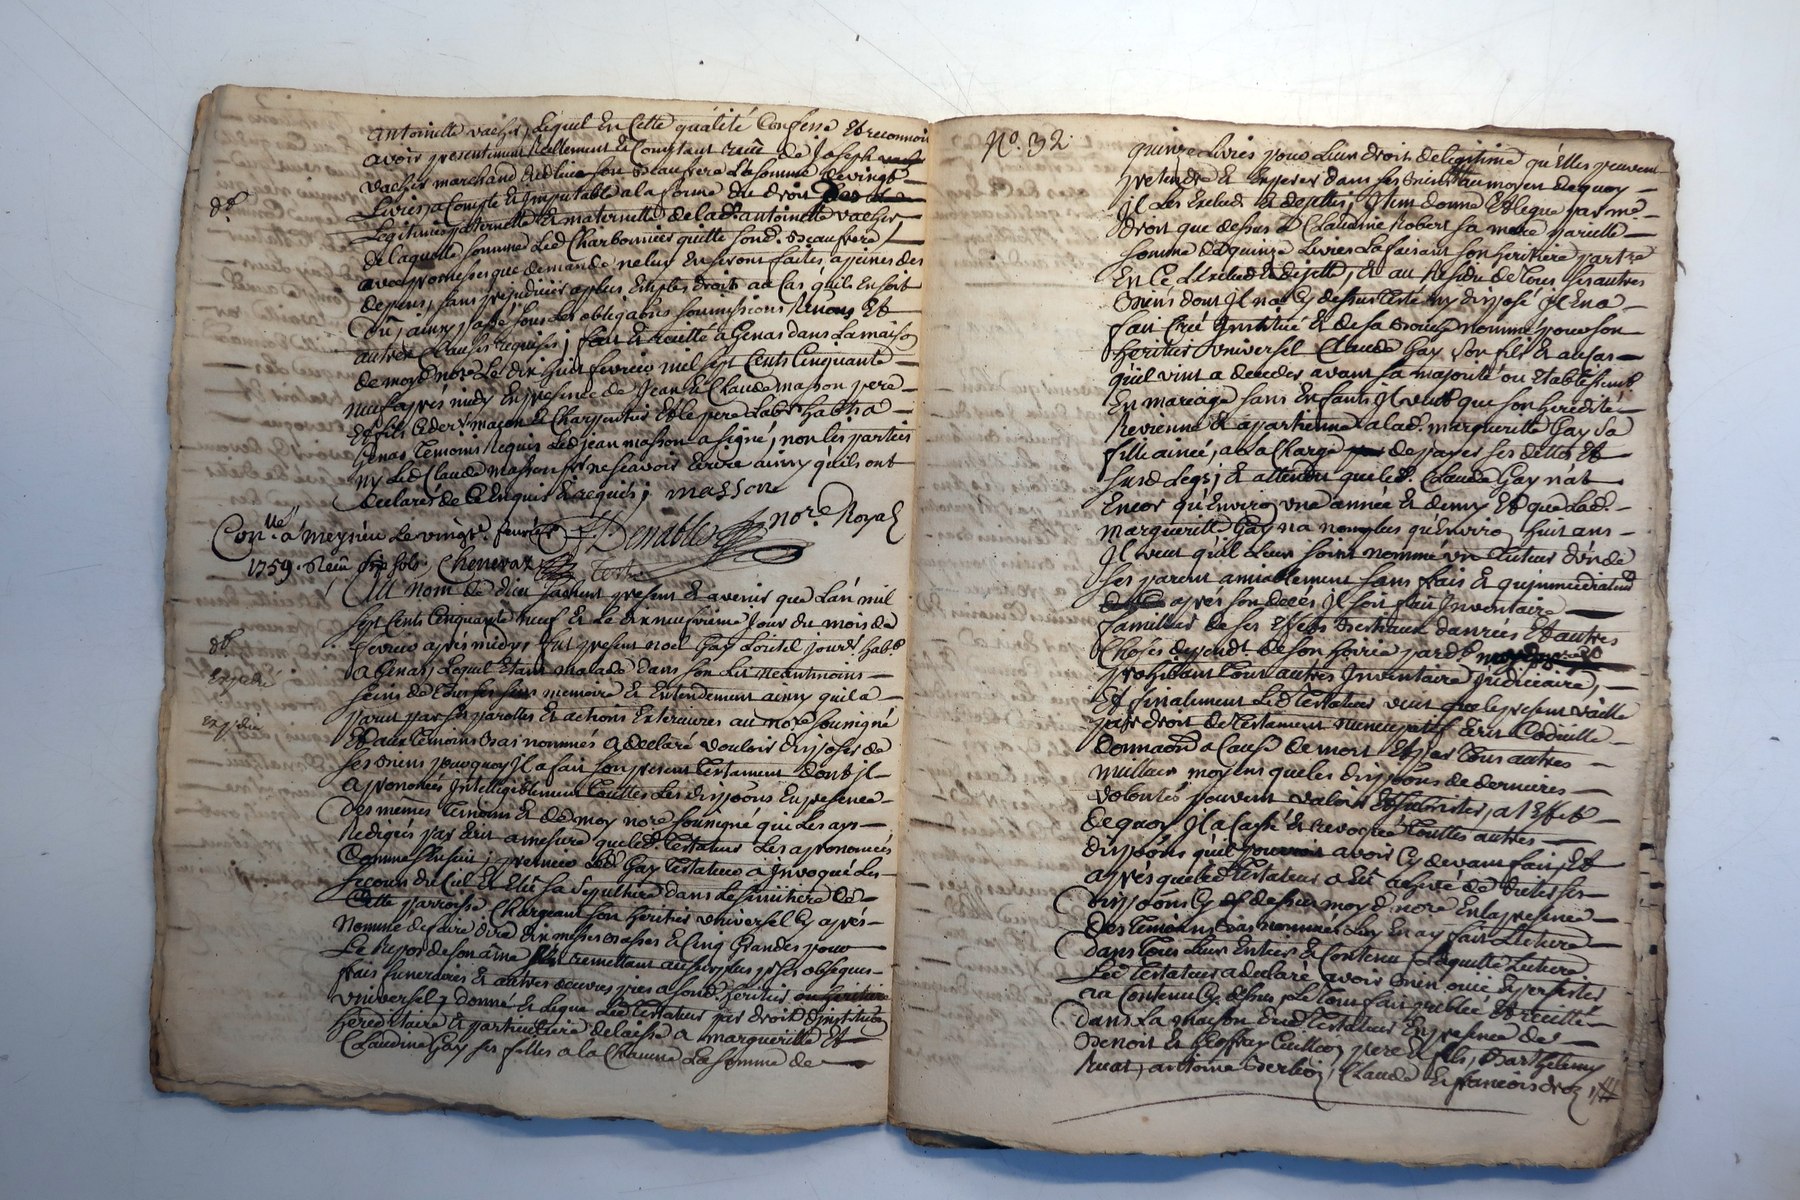 antoinette vacher, Lequel En Cette qualité Confesse Et reconnoit
avoir presentement Reellement Et Comptant receu de Joseph
vacher marchand son Beaufrere La somme de vingt
Livres, a Compte Et Imputable a la forme du droit
Legitimes paternelle Et maternelle de lad. antoinette vacher
de laquelle somme Led Charbonnier quitte sond. Beaufrere
avec promesse que demande ne luy En seront faites a peines des
depens, sans prejudicier a plus amples droits au Cas qu'ils En soit
ainsy passé sous Les obligaons soumissions Renons Et
autres Clauses requises; fait Et recitté a Genas dans La maison
de moyd nore Le dix huit fevrier mil sept Cents Cinquante
neuf apres midy En presence de Jean Et Claude masson pere
Et fils maçon Et Charpentier habts a
Genas Temoins Requis Led jean masson a signé, non les parties
ny Led Claude masson pr ne scavoir Ecrire ainsy qu'ils ont
declarés de Ce Enquis Et requis; masson
Con.lle á Meyzieu Le vingt fevrier Denable nore Royal
1759. Receu six sols. Chenevaz
Au Nom de Dieu sachent present Et avenir que L'an mil
sept Cents Cinquante neuf Et Le dix neufvieme Jour du mois de
fevrier apres midy, fut present noel Gay jour.r hab.t
Expedié
a Genas, Lequel Etant malade dans son Lit Neantmoins
sains de memoire Et Entendement ainsy qu'il a
Expedié
parut par ses parolles Et actions Exterieures au nore soussigné
Et aux Temoins Bas nommés a declaré vouloir disposer de
ses Biens pourquoy Il a fait son present Testament dont il
a prononcés Intelligiblement Touttes Les dispoons En presence
des memes Temoins Et de moy nore soussigné qui Les ays
Redigees par Ecrit a mesure que led. Testateur Les a prononcés
Comme s'ensuit; premier Led Gay Testateur a Invoqué Les
secours du Ciel Et Elu sa sepulture dans Le simitiere de
Cette parroisse Chargeant son heritier universel Cy aprés
Nommé de faire dire dix messes Basses Et Cinq Grandes pour
Le Repos de son ame remettant au surplus pr ses obseques
frais funeraires Et autres oeuvres pies a sond. heritier
universel, donne Et Legue Led Testateur par droit d'instituon
hereditaire Et particuliere delaisse a marguerite Et
Claudine Gay ses filles a la Chacune La somme de
No. 32.
quinze Livres pour Leur droit de legitime qu'Elles peuvent
pretendre Et Esperer dans ses Biens au moyen de quoy
il Les Exclud Et dejette, Item donne Et Legue par me
droit que dessus a Claudine Robert sa mere pareille
somme de quinze Livres La faisant son heritiere partre
En Ce L'Exclud Et dejette, Et au Residu de Tous ses autres
Biens dont Il na Cy dessus Testé ny disposé Il En a
fait Creé Institué Et de sa Bouche nommé pour son
heritier universel Claude Gay, son fils Et au cas
qu'il vint a deceder avant sa majorité ou Etablissemt
En mariage sans Enfants Il veut que son heredité
Revienne Et apartienne a lad. marguerite Gay sa
fille ainée, a la Charge de payer ses dettes Et
susd Legs; Et attendu que led. Claude Gay n'at
Encor qu'Environ une année Et demy Et que lad.
marguerite Gay na non plus qu'Environ huit ans
Il veut qu'il Leur soient nommé un Tuteur
ses parent amiablement sans frais Et qu'immediatemt
aprés son decés Il soit fait Inventaire
familier de ses Effets Bestiaux danrées Et autres
Choses depend.t de son hoirie par
prohibant Tout autres Inventaire Judiciaire,
Et finalement Led Testateur veut que le present vaille
par droit de Testament Nuncupatif Ecrit Codicille
donnaon a Cause de mort Et par Tous autres
meilleurs moyens que les dispoons de dernieres
volontés peuvent valoir Et subsister, a l'Effet
de quoy Il a Cassé Et revoquée Touttes autres
dispoons qu'il avoir Cy devant fait, Et
apres que led Testateur a Eu achevé de dicter ses
dispoons Cy dessus moyd. nore En la presence
des Temoins Bas nommés Luy En ay fait Lecture
dans Tous Leur Entier Et Contenu, Laquelle Lecture
Led Testateur a declaré avoir Bien ouie Et persister
au Contenu Cy dessus, Le Tout fait publié Et recitté
dans La maison dud Testateur En presence de
Benoit Et Cuilleron pere Et fils, Barthelemy
antoine Berlioz, Claude Et francois droz